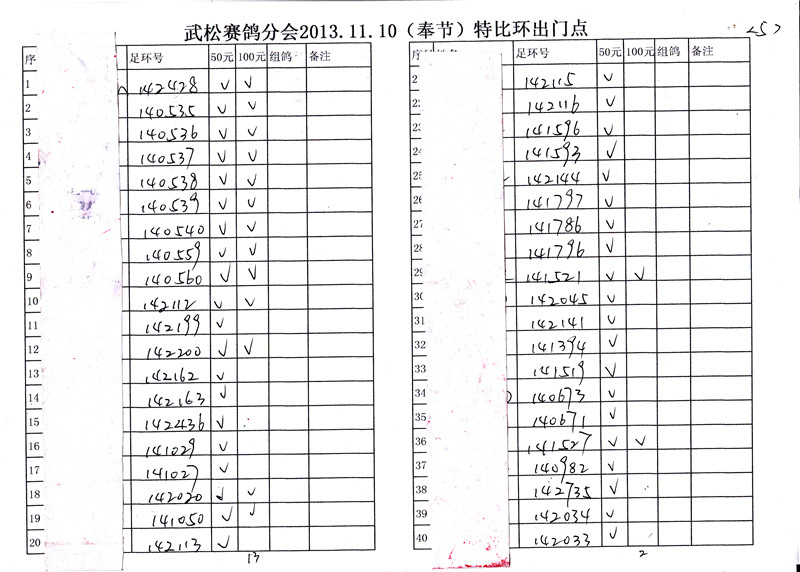 武松赛鸽分会2013.11.10（奉节）特比环出门点
序 足环号 50元 100元 组鸽 备注
1 142428 ✓ ✓
2 140535 ✓ ✓
3 140536 ✓ ✓
4 140537 ✓ ✓
5 140538 ✓ ✓
6 140539 ✓ ✓
7 140540 ✓ ✓
8 140559 ✓ ✓
9 140560 ✓ ✓
10 142112 ✓ ✓
11 142199 ✓
12 142200 ✓ ✓
13 142162 ✓
14 142163 ✓
15 142436 ✓
16 141029 ✓
17 141027 ✓
18 142020 ✓ ✓
19 141050 ✓ ✓
20 142113 ✓
13
足环号 50元 100元 组鸽 备注
2 142115 ✓
2 142116 ✓
23 141596 ✓
24 141593 ✓
25 142144 ✓
26 141797 ✓
27 141786 ✓
28 141796 ✓
29 141521 ✓ ✓
30 142045 ✓
31 142141 ✓
32 141394 ✓
33 141519 ✓
34 140673 ✓
35 140671 ✓
36 141527 ✓ ✓
37 140982 ✓
38 142735 ✓
39 142034 ✓
40 142033 ✓
2